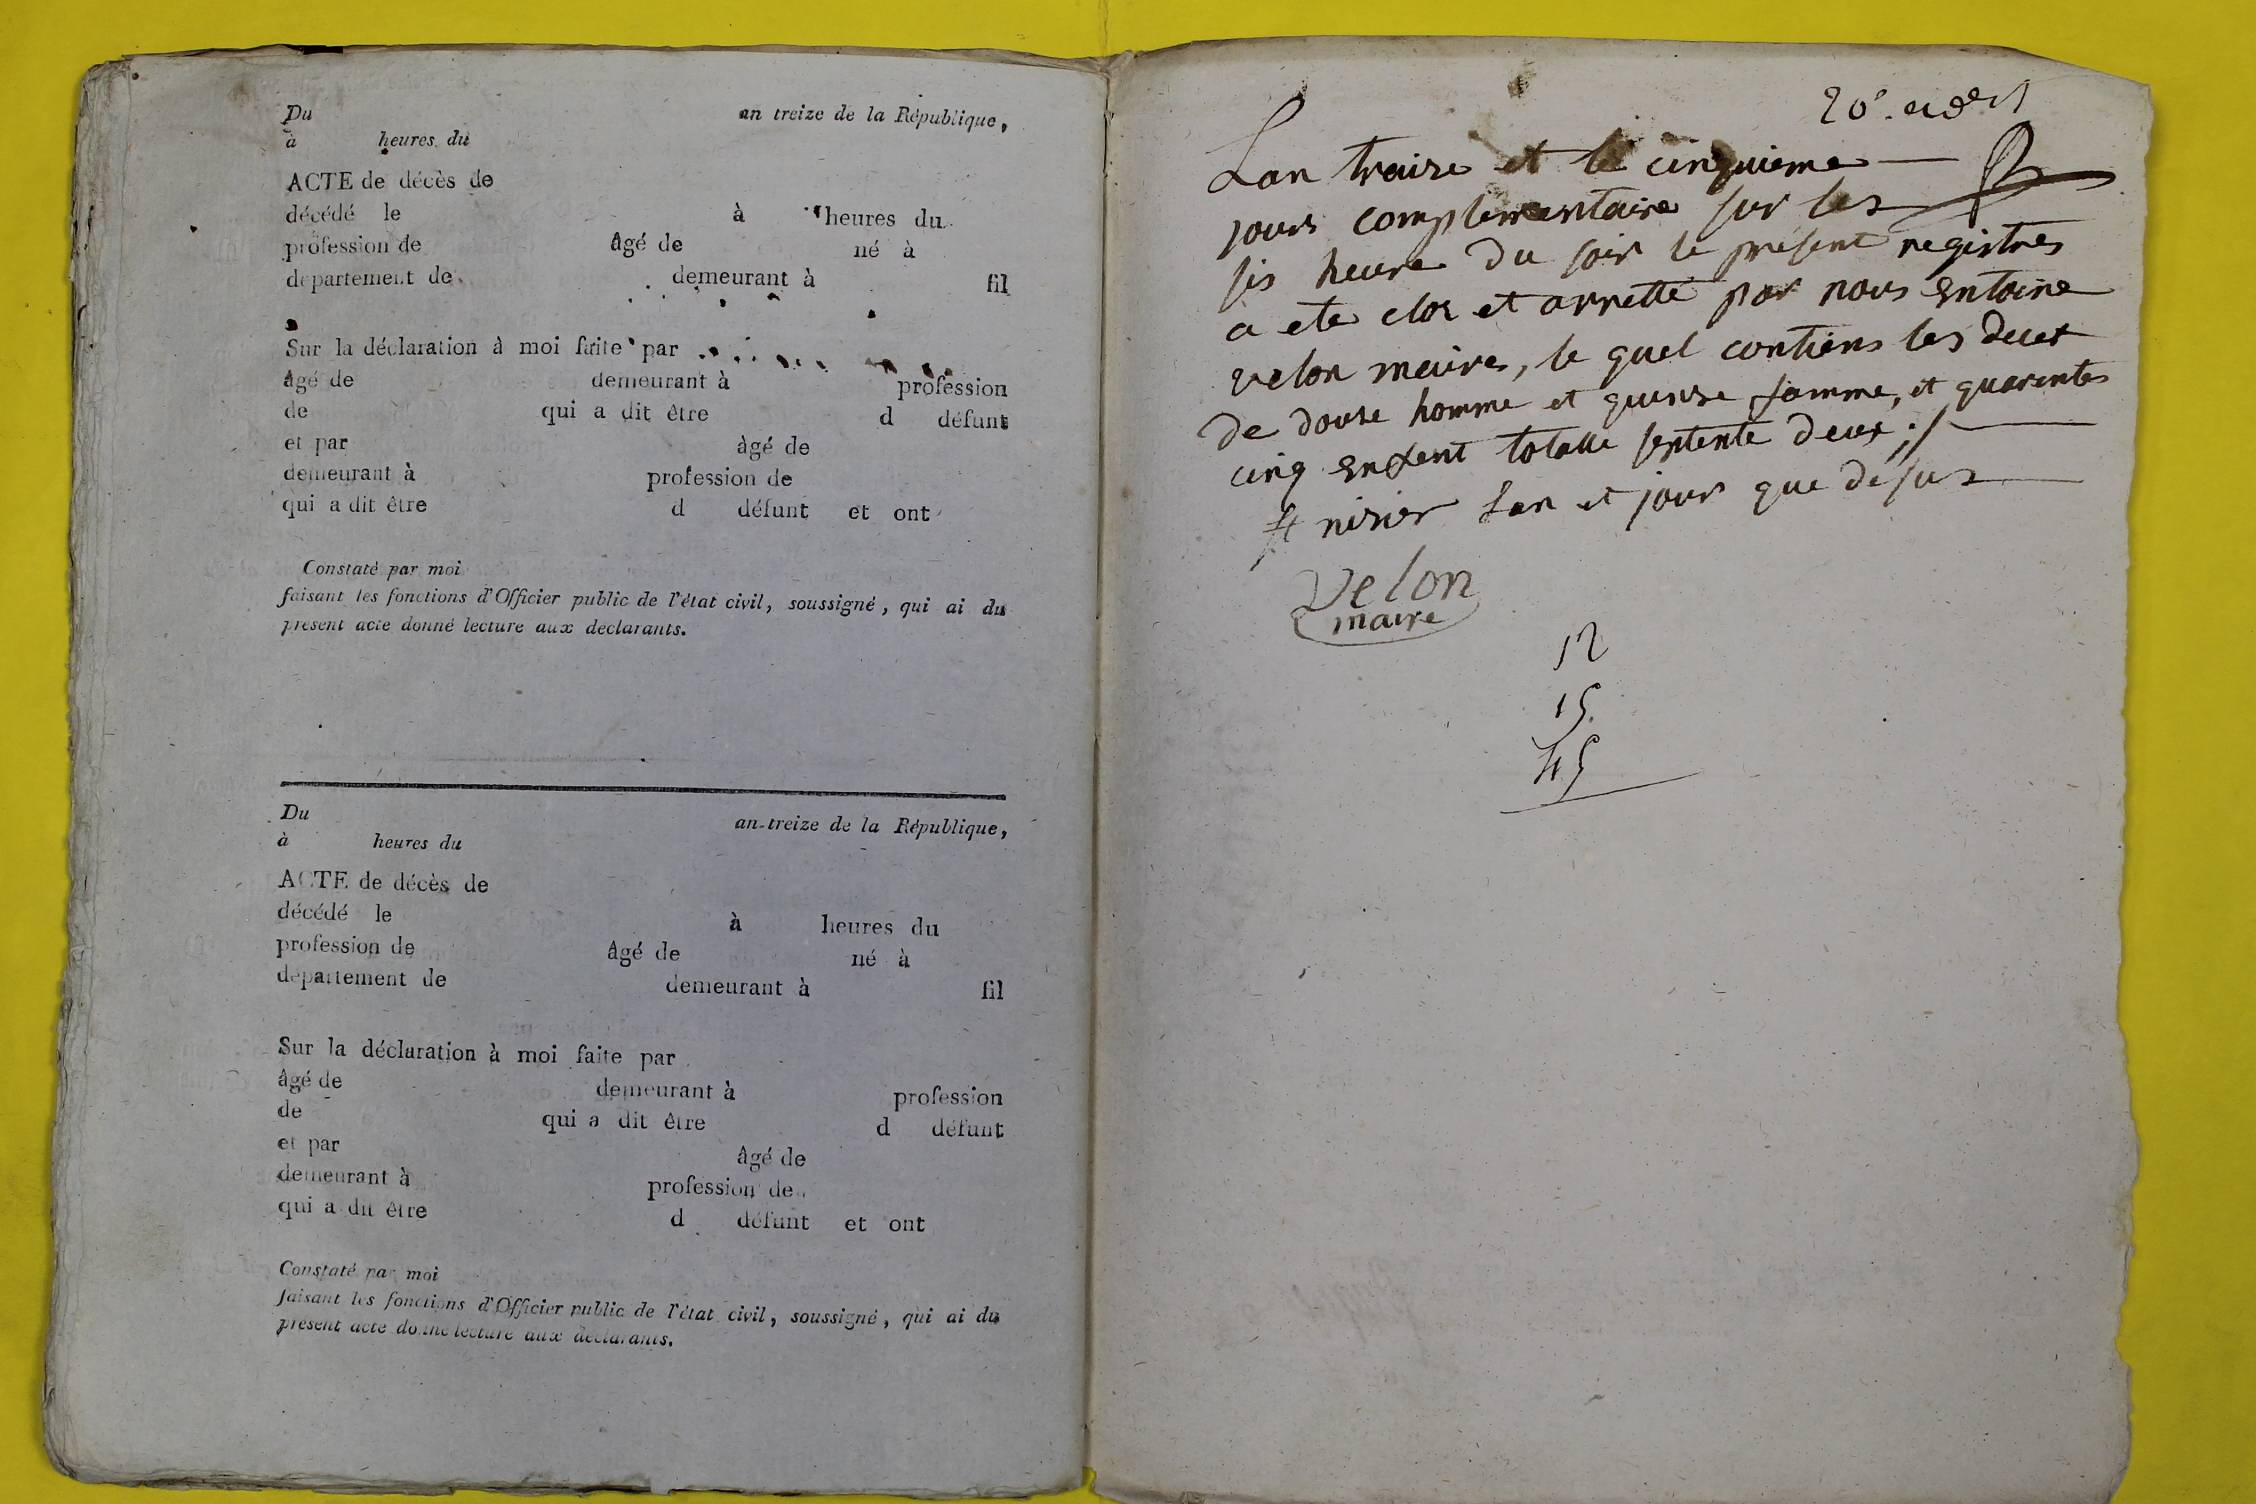 Du an treize de la République,
à heures du
ACTE de décès de
décédé le à heures du
profession de âgé de né à
département de demeurant à fil
Sur la déclaration à moi faite par
âgé de demeurant à profession
de qui a dit être d défunt
et par âgé de
demeurant à profession de
qui a dit être d défunt et ont
Constaté par moi
faisant les fonctions d'Officier public de l'état civil, soussigné, qui ai du
présent acte donné lecture aux déclarants.
Du an treize de la République,
à heures du
ACTE de décès de
décédé le à heures du
profession de âgé de né à
département de demeurant à fil
Sur la déclaration à moi faite par
âgé de demeurant à profession
de qui a dit être d défunt
et par âgé de
demeurant à profession de
qui a dit être d défunt et ont
Constaté par moi
faisant les fonctions d'Officier public de l'état civil, soussigné, qui ai du
présent acte donné lecture aux déclarants.
20e
Lan traize et le cinquieme
jours complementaire sur les
sis heure du soir le present registres
a ete clos et arretté par nous entoine
velon maire, le quel contiens les deces
de douze homme et quinze famme, et quarentes
cinq enfent totalle septente deux ./
st nizier lan et jour que desus
velon
maire
12
15
45